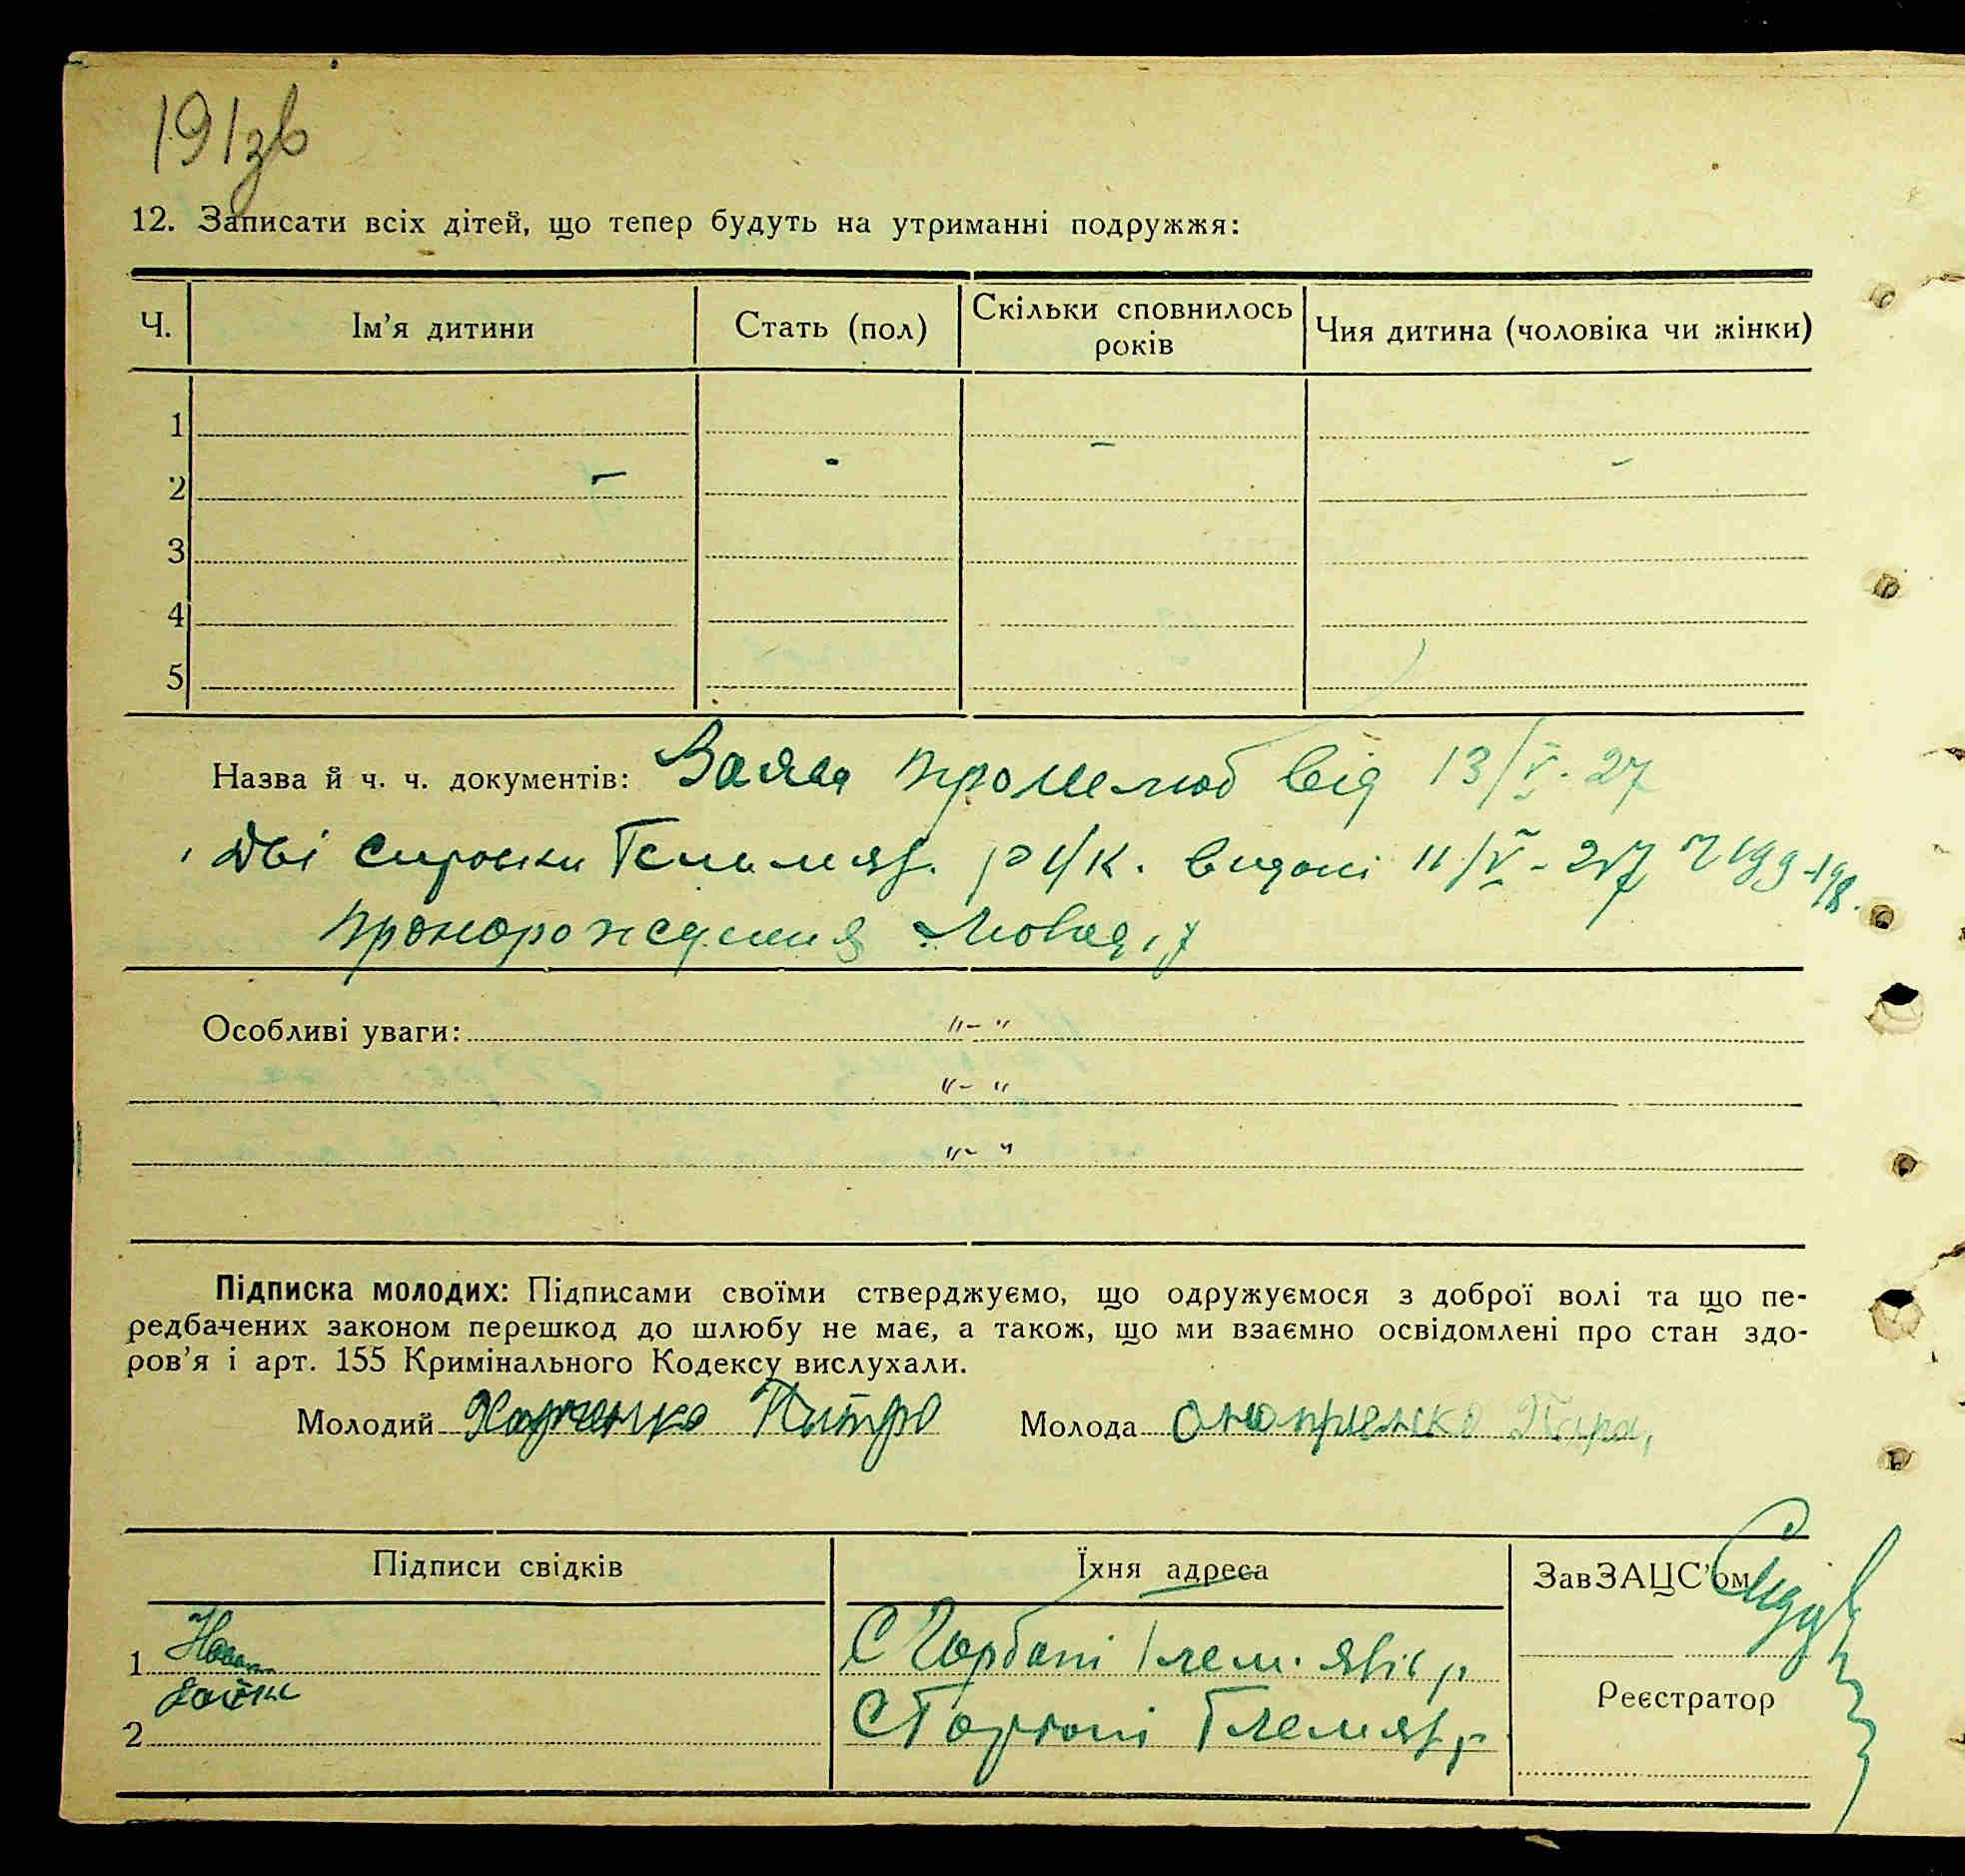 191зв
12. Записати всіх дітей, що тепер будуть на утриманні подружжя:
Ч. Ім'я дитини Стать (пол) Скільки сповнилось років Чия дитина (чоловіка чи жінки)
1
2 - - - -
3
4
5
Назва й ч. ч. документів: Заява про шлюб від 13/V. 27
дві р в/к. видані 11/V - 27
про народження
Особливі уваги: "- "
"- "
"- "
Підписка молодих: Підписами своїми стверджуємо, що одружуємося з доброї волі та що пе-
редбачених законом перешкод до шлюбу не має, а також, що ми взаємно освідомлені про стан здо-
ров'я і арт. 155 Кримінального Кодексу вислухали.
Молодий Харченко Питро Молода Оноприенко
Підписи свідків Їхня адреса ЗавЗАЦС'ом
1 С Горбані
Реєстратор
2